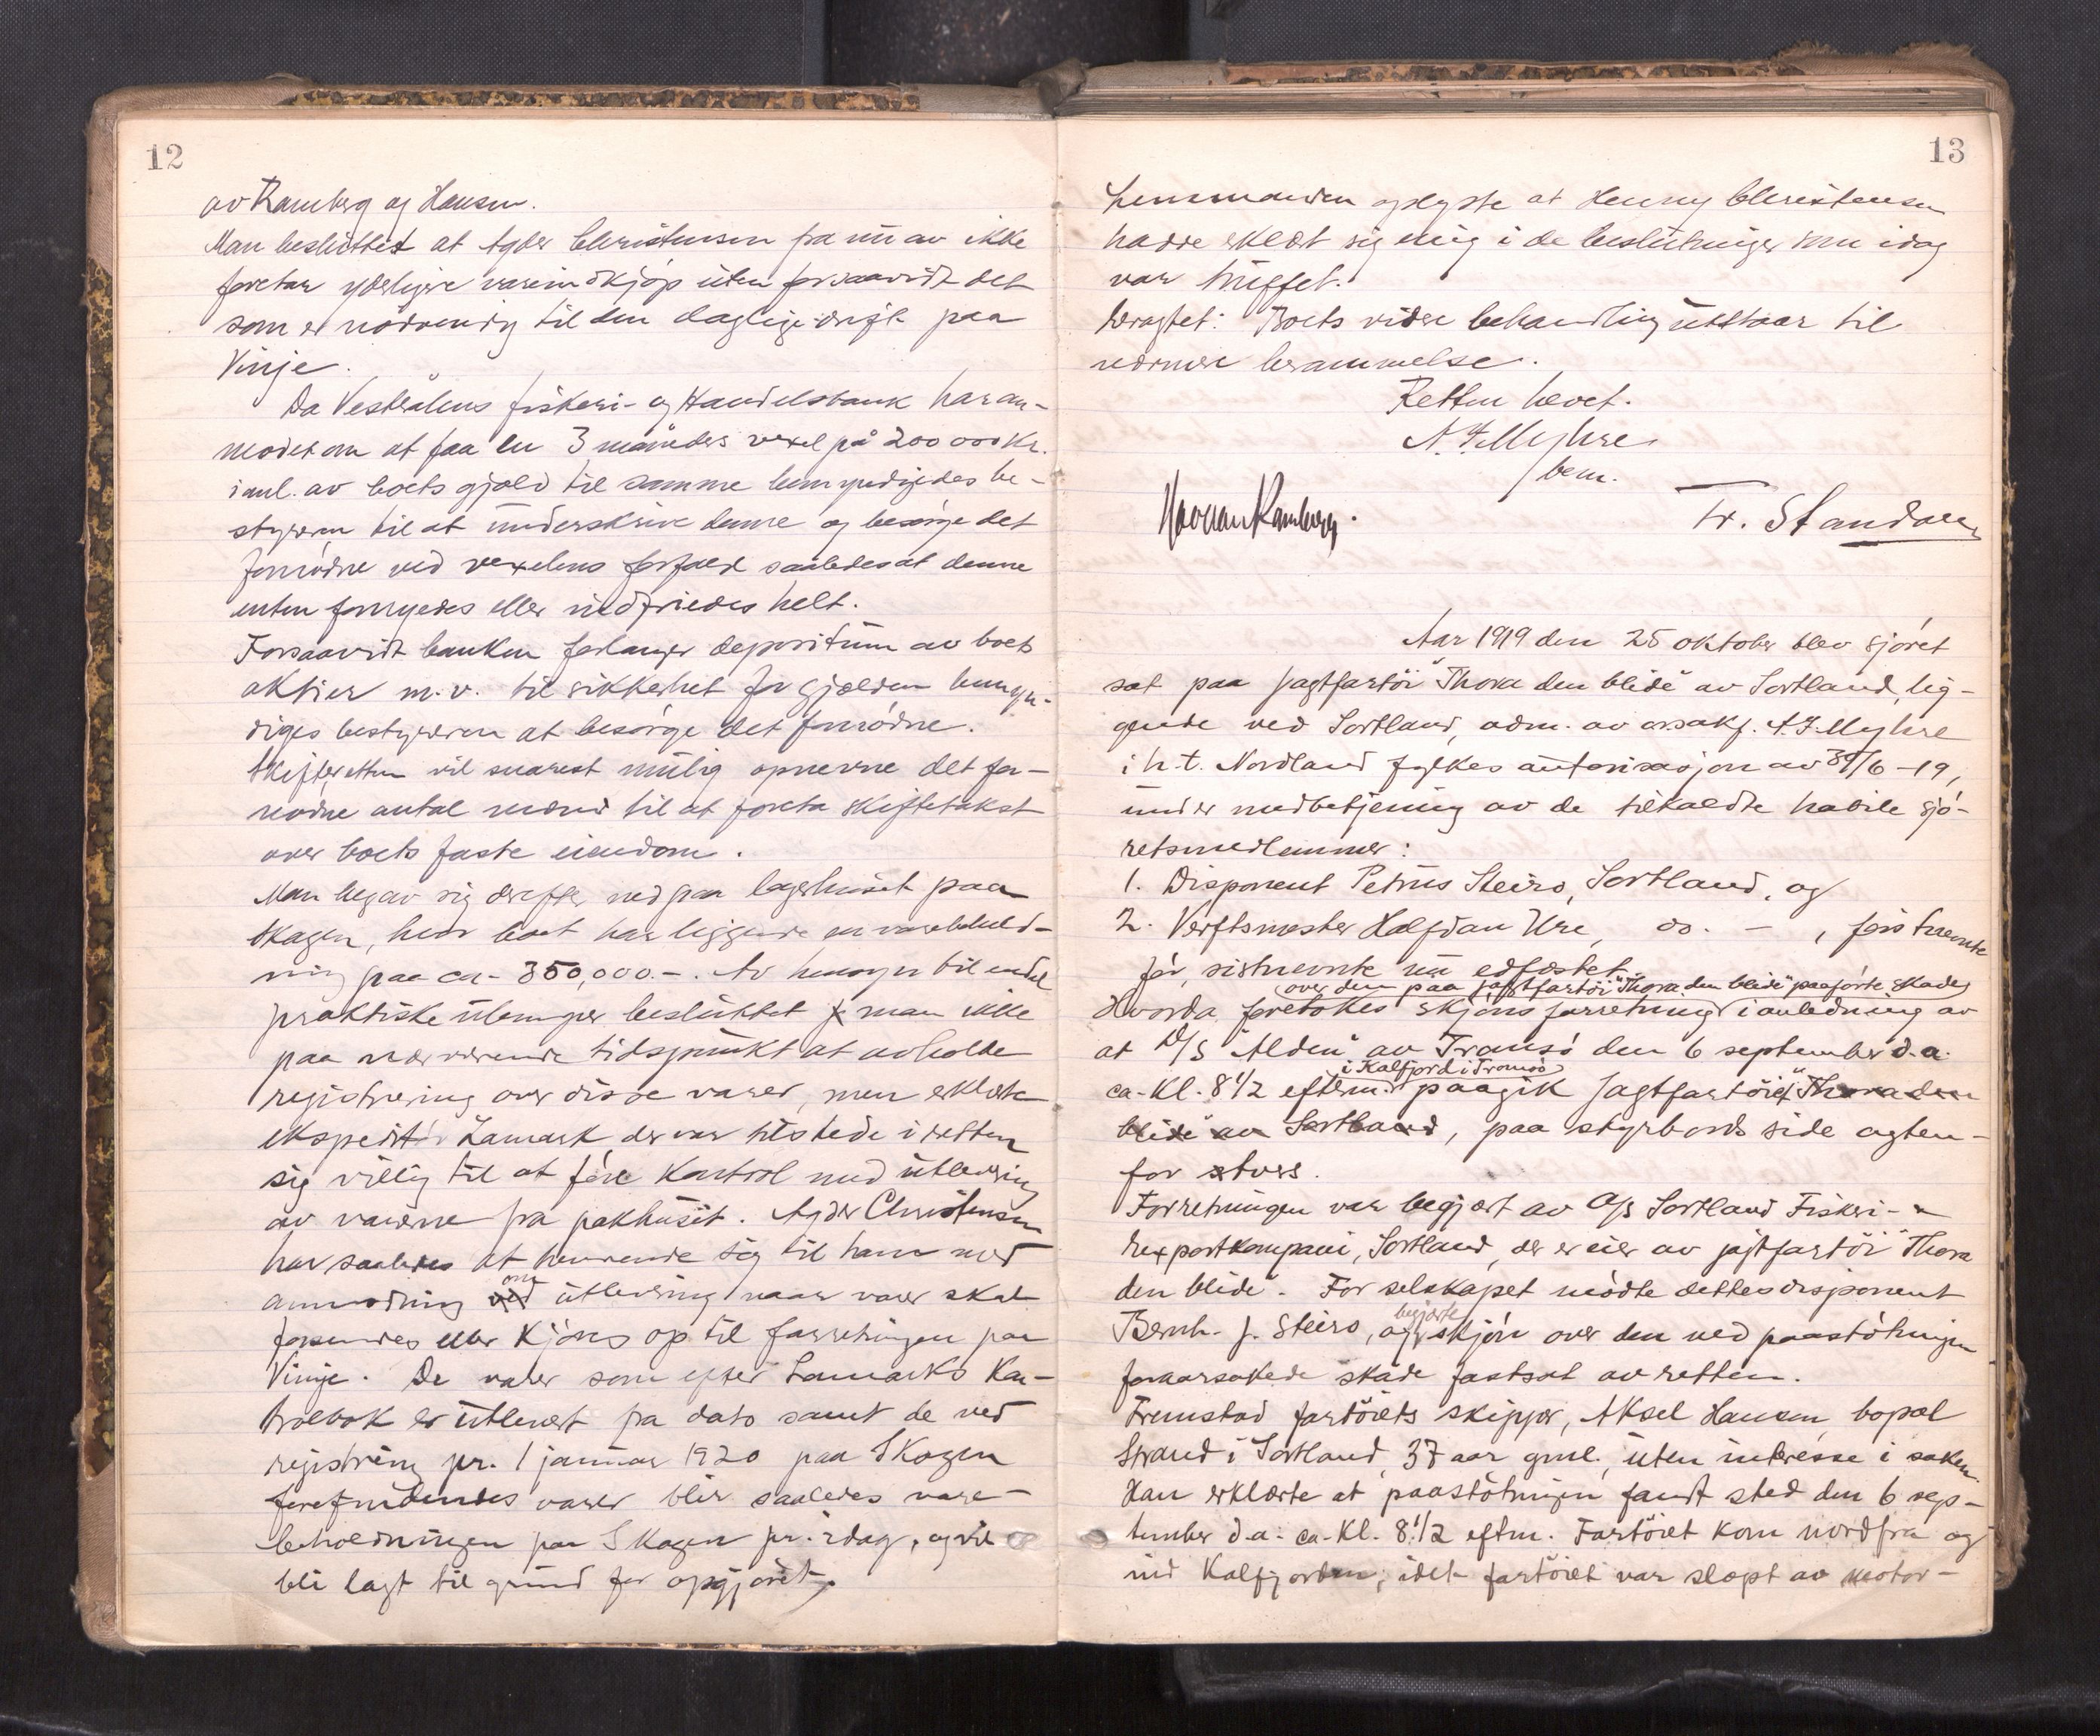 12
av Ramberg og Hansen.
Man besluttet at Agder Christensen fra nu av ikke
foretar yderligere vareindkjøp uten forsaavidt det
som er nødvendig til den daglige drift paa
Vinje.
Da Vesterålens fiskeri- og Handelsbank har an-
modet om at faa en 3 måneders vexel på 200 000 Kr.
i anl. av boets gjæld til samme bemyndigedes be-
styreren til at underskrive denne og besørge det
fornødne ved vexelens forfald saaledes at denne
enten fornyedes eller indfriedes helt.
Forsaavidt banken forlanger depositum av boets
aktier m.v. til sikkerhet for gjælden bemyn-
diges bestyreren at besørge det fornødne.
Skifteretten vil snarest mulig opnevne det for-
nødne antal mænd til at foreta skiftetakst
over boets faste eiendom.
Man begav sig derefter ned paa lagerhuset paa
Skagen, hvor boet har liggende en varebehold-
ning paa ca. 350,000.-. Av hensyn til endel
praktiske ulemper besluttet man ikke
paa nærværende tidspunkt at avholde
registrering over disse varer, men erklærte
ekspeditør Lamark der var tilstede i retten
sig villig til at føre kontrol med utlevering
av varerne fra pakhuset. Agder Christensen
har saaledes at henvende sig til ham med
anmodning ved om utlevering naar varer skal
forsendes eller kjøres op til forretningen paa
Vinje. De varer som efter Lamarks kon-
trolbok er utlevert fra dato samt de ved
registrering pr. 1 januar 1920 paa Skagen
forefindendes varer blir saaledes vare-
beholdningen paa Skagen pr. idag, og vil
bli lagt til grund for opgjøret.
13
Lensmanden oplyste at Henny Christensen
hadde erklært sig enig i de beslutninger som idag
var truffet.
Bragtet: Boets videre behandling utstaar til
nærmere berammelse.
Retten hævet.
A. F. Myhre
bem.
Haavan Ramberg.
Fr. Standal
Aar 1919 den 25 oktober blev sjøret
sat paa jagtfartøi "Thora den blide" av Sortland, lig-
gende ved Sortland, adm. av o.r.sakf. A. F. Myhre
i h.t. Nordland fylkes autorisasjon av 30/6-19,
under medbetjening av de tilkaldte habile sjø-
retsmedlemmer:
1. Disponent Petrus Steiro, Sortland, og
2. Verftsmester Halfdan Ure, do. - , førstnevnte
før, sistnevnte nu edfæstet.
over den paa jagtfartøi "Thora den blide" paaførte skade
Hvorda foretokes skjønsforretning i anledning av
at D/S "Alden" av Tromsø den 6 september d.a.
i Kalfjord i Tromsø
ca. kl. 8 1/2 efterm. paagik jagtfartøiet "Thora den
blide" av Sortland, paa styrbords side agten-
for tvers.
Forretningen var begjært av A/S Sortland Fiskeri- &
Exportkompani, Sortland, der er eier av jagtfartøi "Thora
den blide". For selskapet mødte dettes disponent
begjærte
Bernh. J. Steiro, og skjøn over den ved paastøtningen
foraarsakede skade fastsat av retten.
Fremstod fartøiets skipper, Aksel Hansen, bopæl
Strand i Sortland, 37 aar gml., uten interesse i saken.
Han erklærte at paastøtningen fandt sted den 6 sep-
tember d.a. ca. kl. 8 1/2 eftm. Fartøiet kom nordfra og
ind Kalfjorden, idet fartøiet var slæpt av motor-